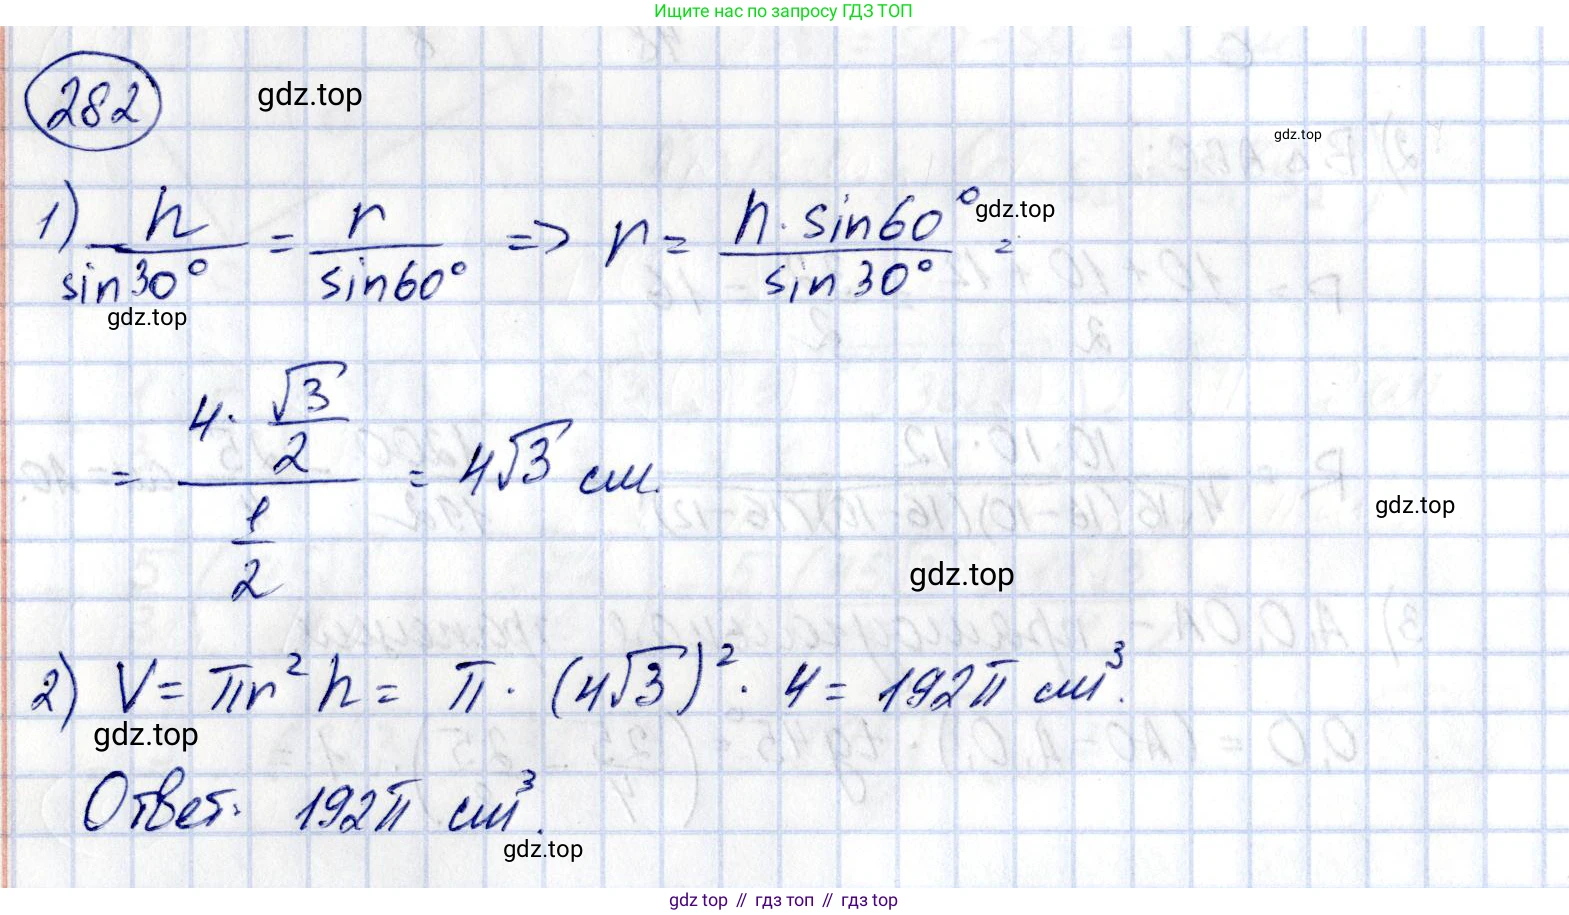 Ищите нас по запросу ГДЗ ТОП
282
gdz.top
gdz.top
1) h/sin30° = r/sin60° => r = h·sin60°/sin30° =
gdz.top
gdz.top
= (4·√3/2)/(1/2) = 4√3 см.
gdz.top
gdz.top
2) V = πr²h = π·(4√3)²·4 = 192π см³.
gdz.top
Ответ: 192π см³.
gdz.top
gdz top // гдз топ // gdz top